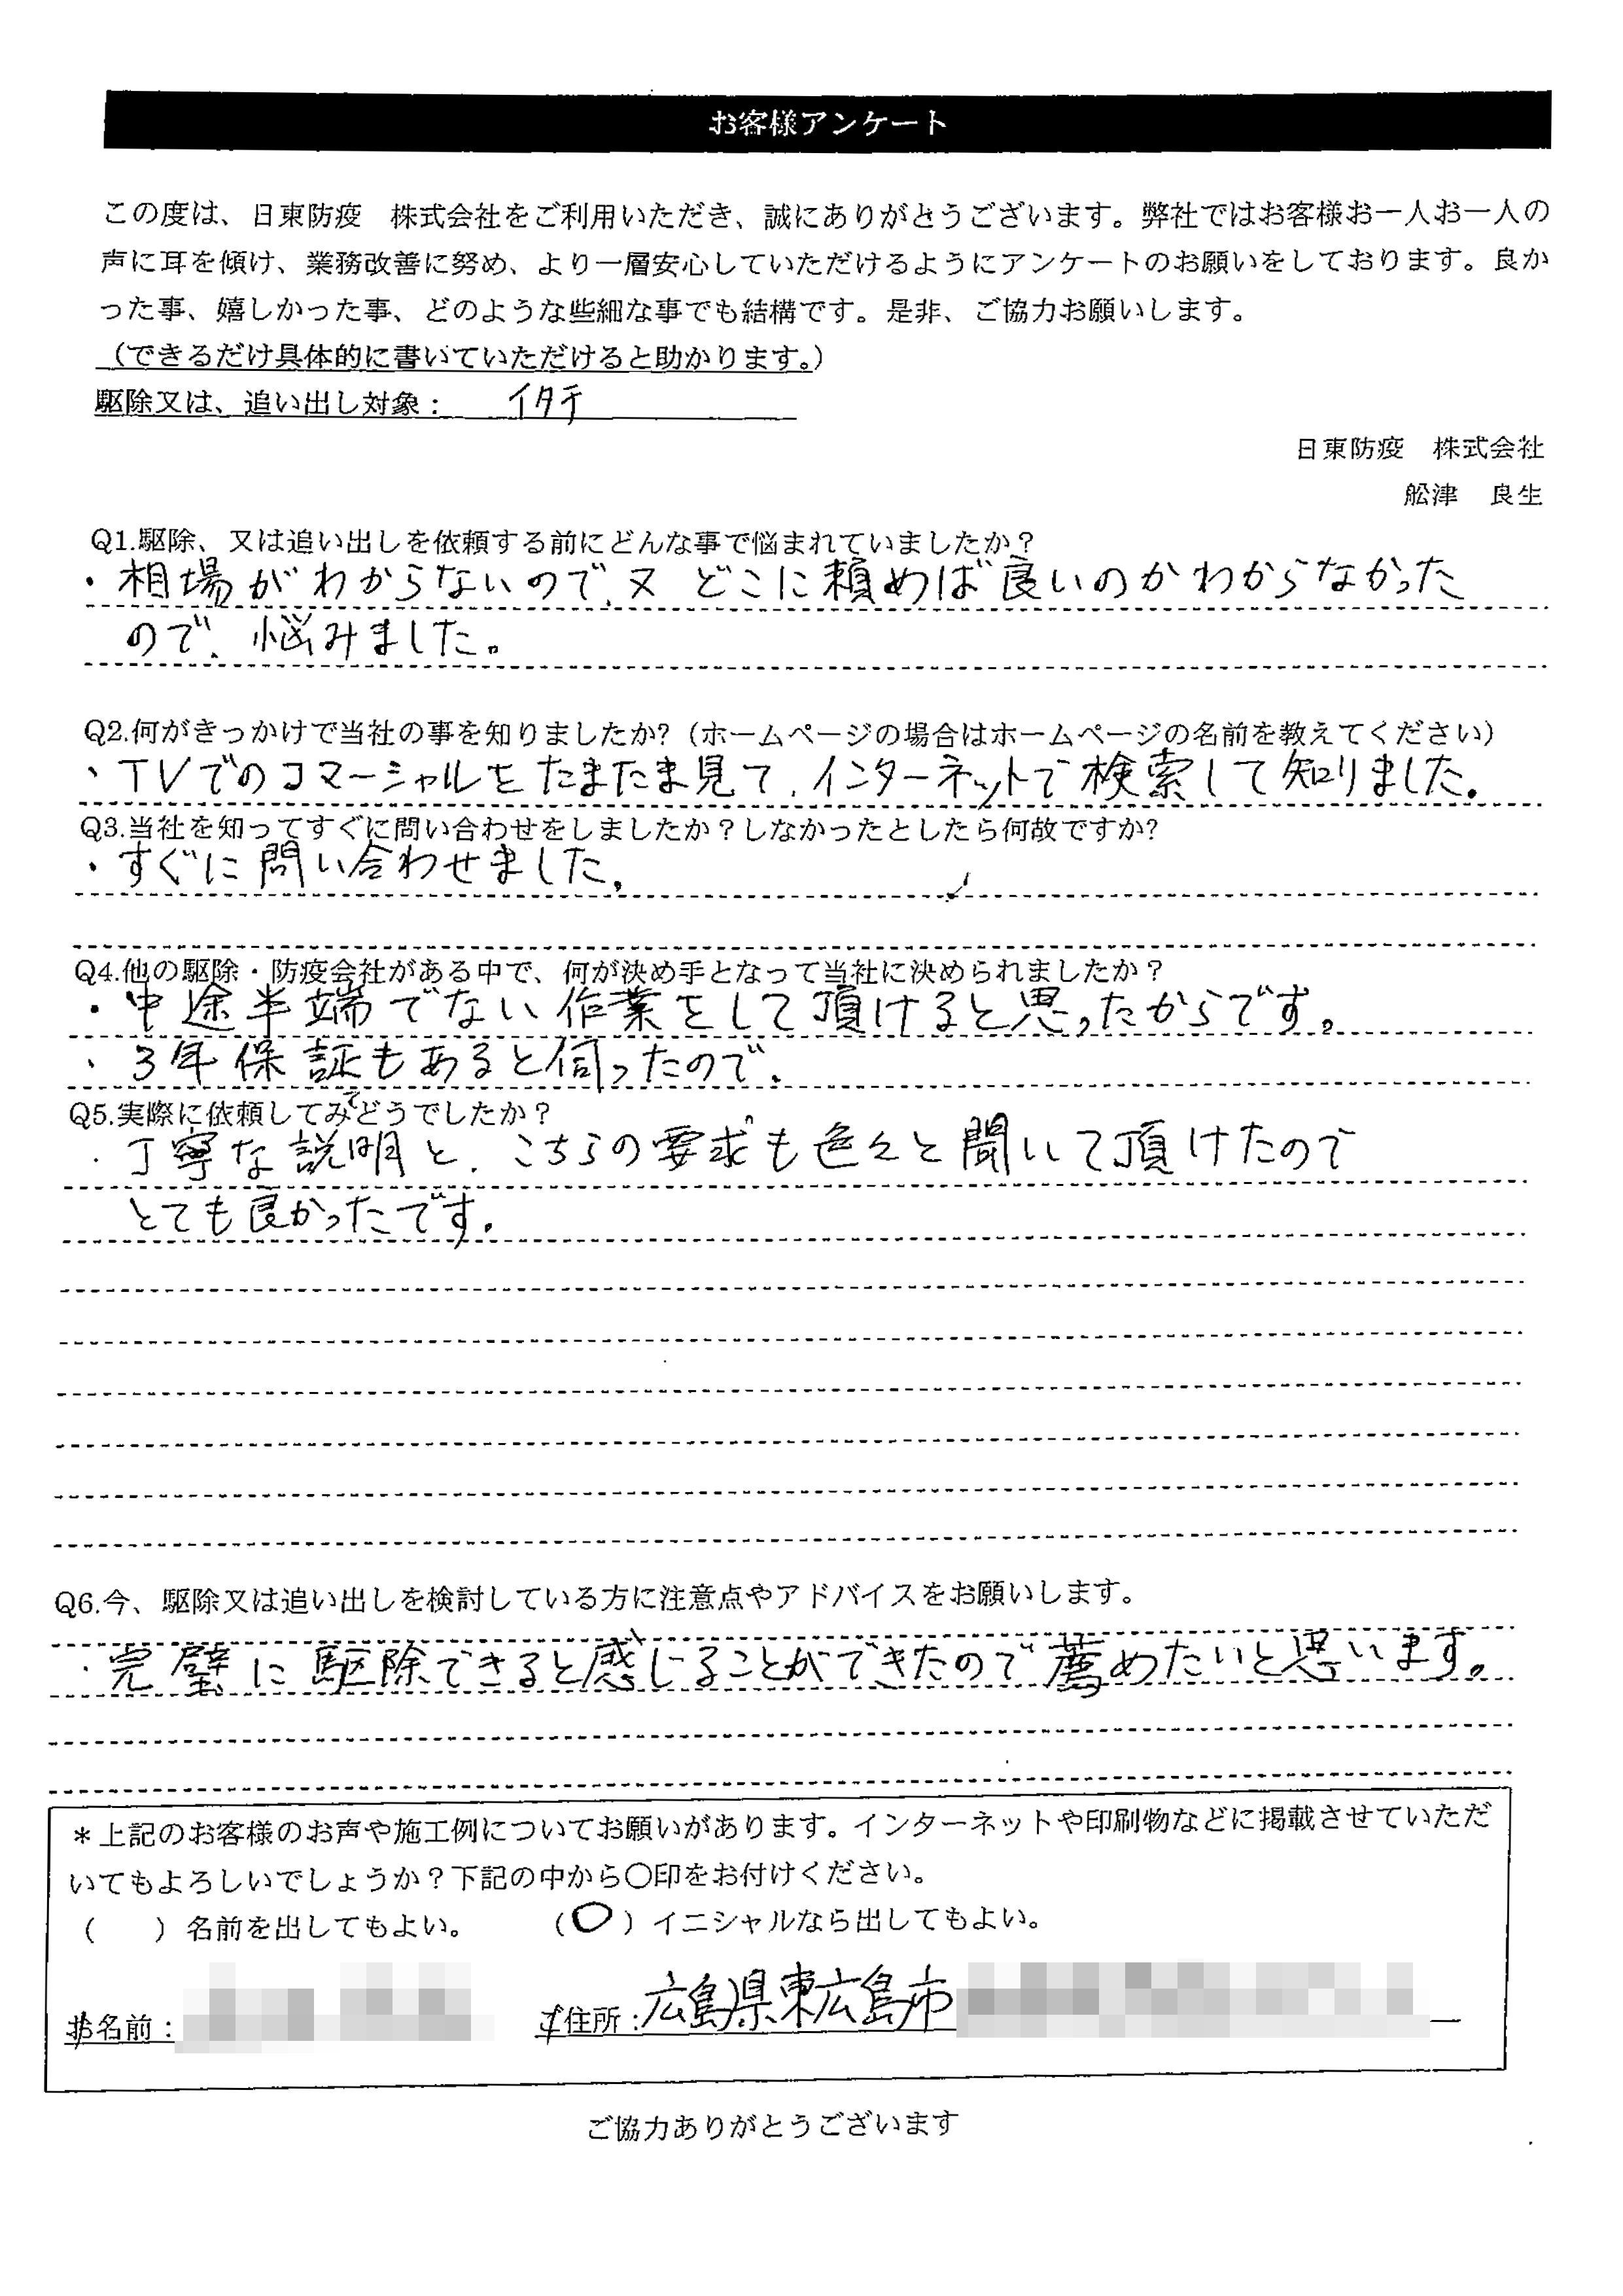 お客様アンケート
この度は、日東防疫　株式会社をご利用いただき、誠にありがとうございます。弊社ではお客様お一人お一人の
声に耳を傾け、業務改善に努め、より一層安心していただけるようにアンケートのお願いをしております。良か
った事、嬉しかった事、どのような些細な事でも結構です。是非、ご協力お願いします。
（できるだけ具体的に書いていただけると助かります。）
駆除又は、追い出し対象：　イタチ
日東防疫　株式会社
舩津　良生
Q1.駆除、又は追い出しを依頼する前にどんな事で悩まれていましたか？
・相場がわからないので、又 どこに頼めば良いのかわからなかった
ので、悩みました。
Q2.何がきっかけで当社の事を知りましたか?（ホームページの場合はホームページの名前を教えてください）
・TVでのコマーシャルをたまたま見て、インターネットで検索して知りました。
Q3.当社を知ってすぐに問い合わせをしましたか？しなかったとしたら何故ですか?
・すぐに問い合わせました。
Q4.他の駆除・防疫会社がある中で、何が決め手となって当社に決められましたか？
・中途半端でない作業をして頂けると思ったからです。
・3年保証もあると伺ったので、
Q5.実際に依頼してみてどうでしたか？
・丁寧な説明と、こちらの要求も色々と聞いて頂けたので
とても良かったです。
Q6.今、駆除又は追い出しを検討している方に注意点やアドバイスをお願いします。
・完璧に駆除できると感じることができたので薦めたいと思います。
＊上記のお客様のお声や施工例についてお願いがあります。インターネットや印刷物などに掲載させていただ
いてもよろしいでしょうか？下記の中から〇印をお付けください。
（　　）名前を出してもよい。　　（〇）イニシャルなら出してもよい。
お名前：　　ご住所：広島県東広島市
ご協力ありがとうございます